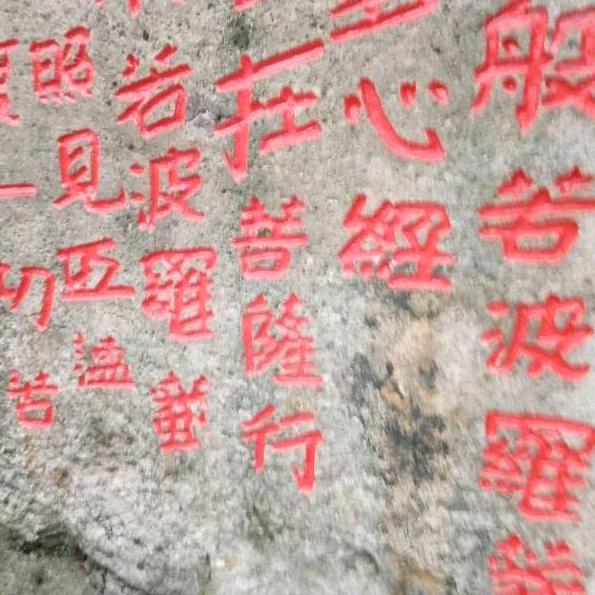 般若波羅
心經
在菩薩行
若波羅蜜
照見五蘊
一切苦